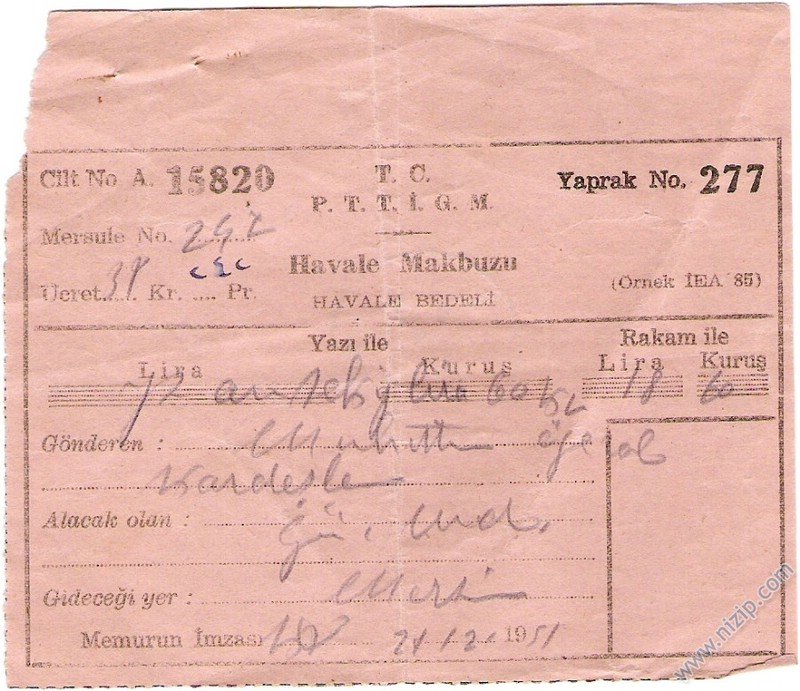 Cilt No A. 15820
T. C.
P. T. T. İ. G. M.
Yaprak No. 277
Mersule No. 242
Ücret..... Kr. .... Pr.
Havale Makbuzu
HAVALE BEDELİ
(Örnek İEA 85)
Yazı ile
Rakam ile
Lira Kuruş Lira Kuruş
on sekiz lira 60 18 60
Gönderen :
Kardeşler
Alacak olan :
Gideceği yer : Mersin
Memurun İmzası 21.12.1951
www.nizip.com